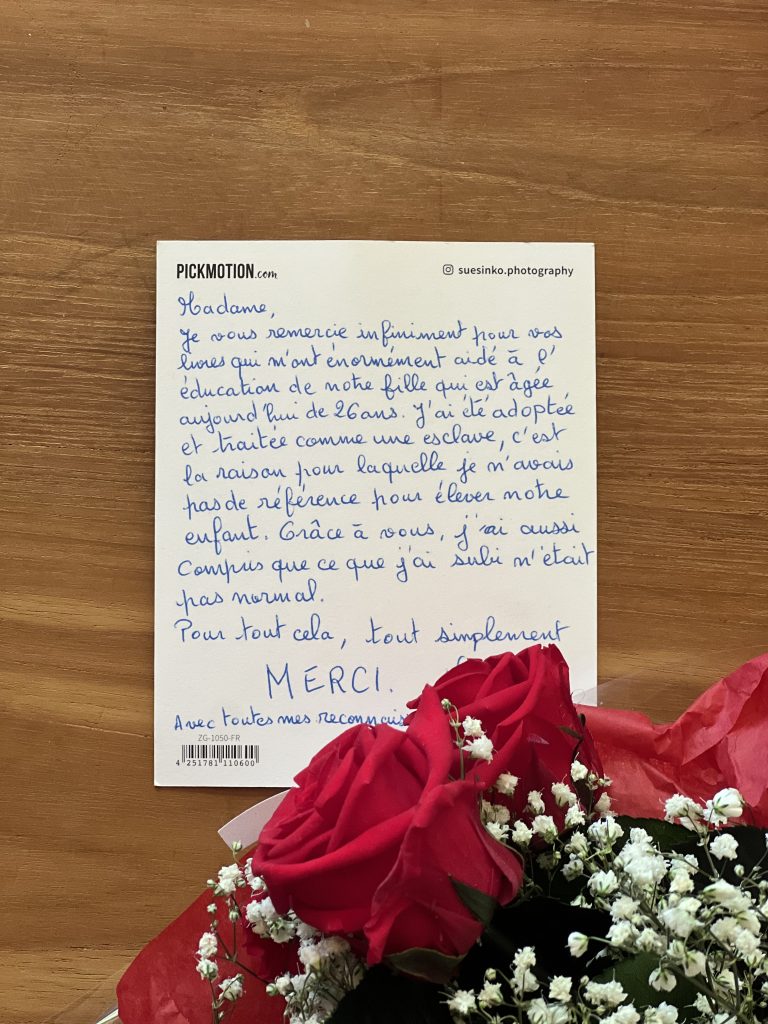 PICKMOTION.com
suesinko.photography
Madame,
Je vous remercie infiniment pour vos
livres qui m'ont énormément aidé à l'
éducation de notre fille qui est âgée
aujourd'hui de 26 ans. J'ai été adoptée
et traitée comme une esclave, c'est
la raison pour laquelle je n'avais
pas de référence pour élever notre
enfant. Grâce à vous, j'ai aussi
compris que ce que j'ai subi n'était
pas normal.
Pour tout cela, tout simplement
MERCI.
Avec toutes mes
ZG-1050-FR
4 251781 110600